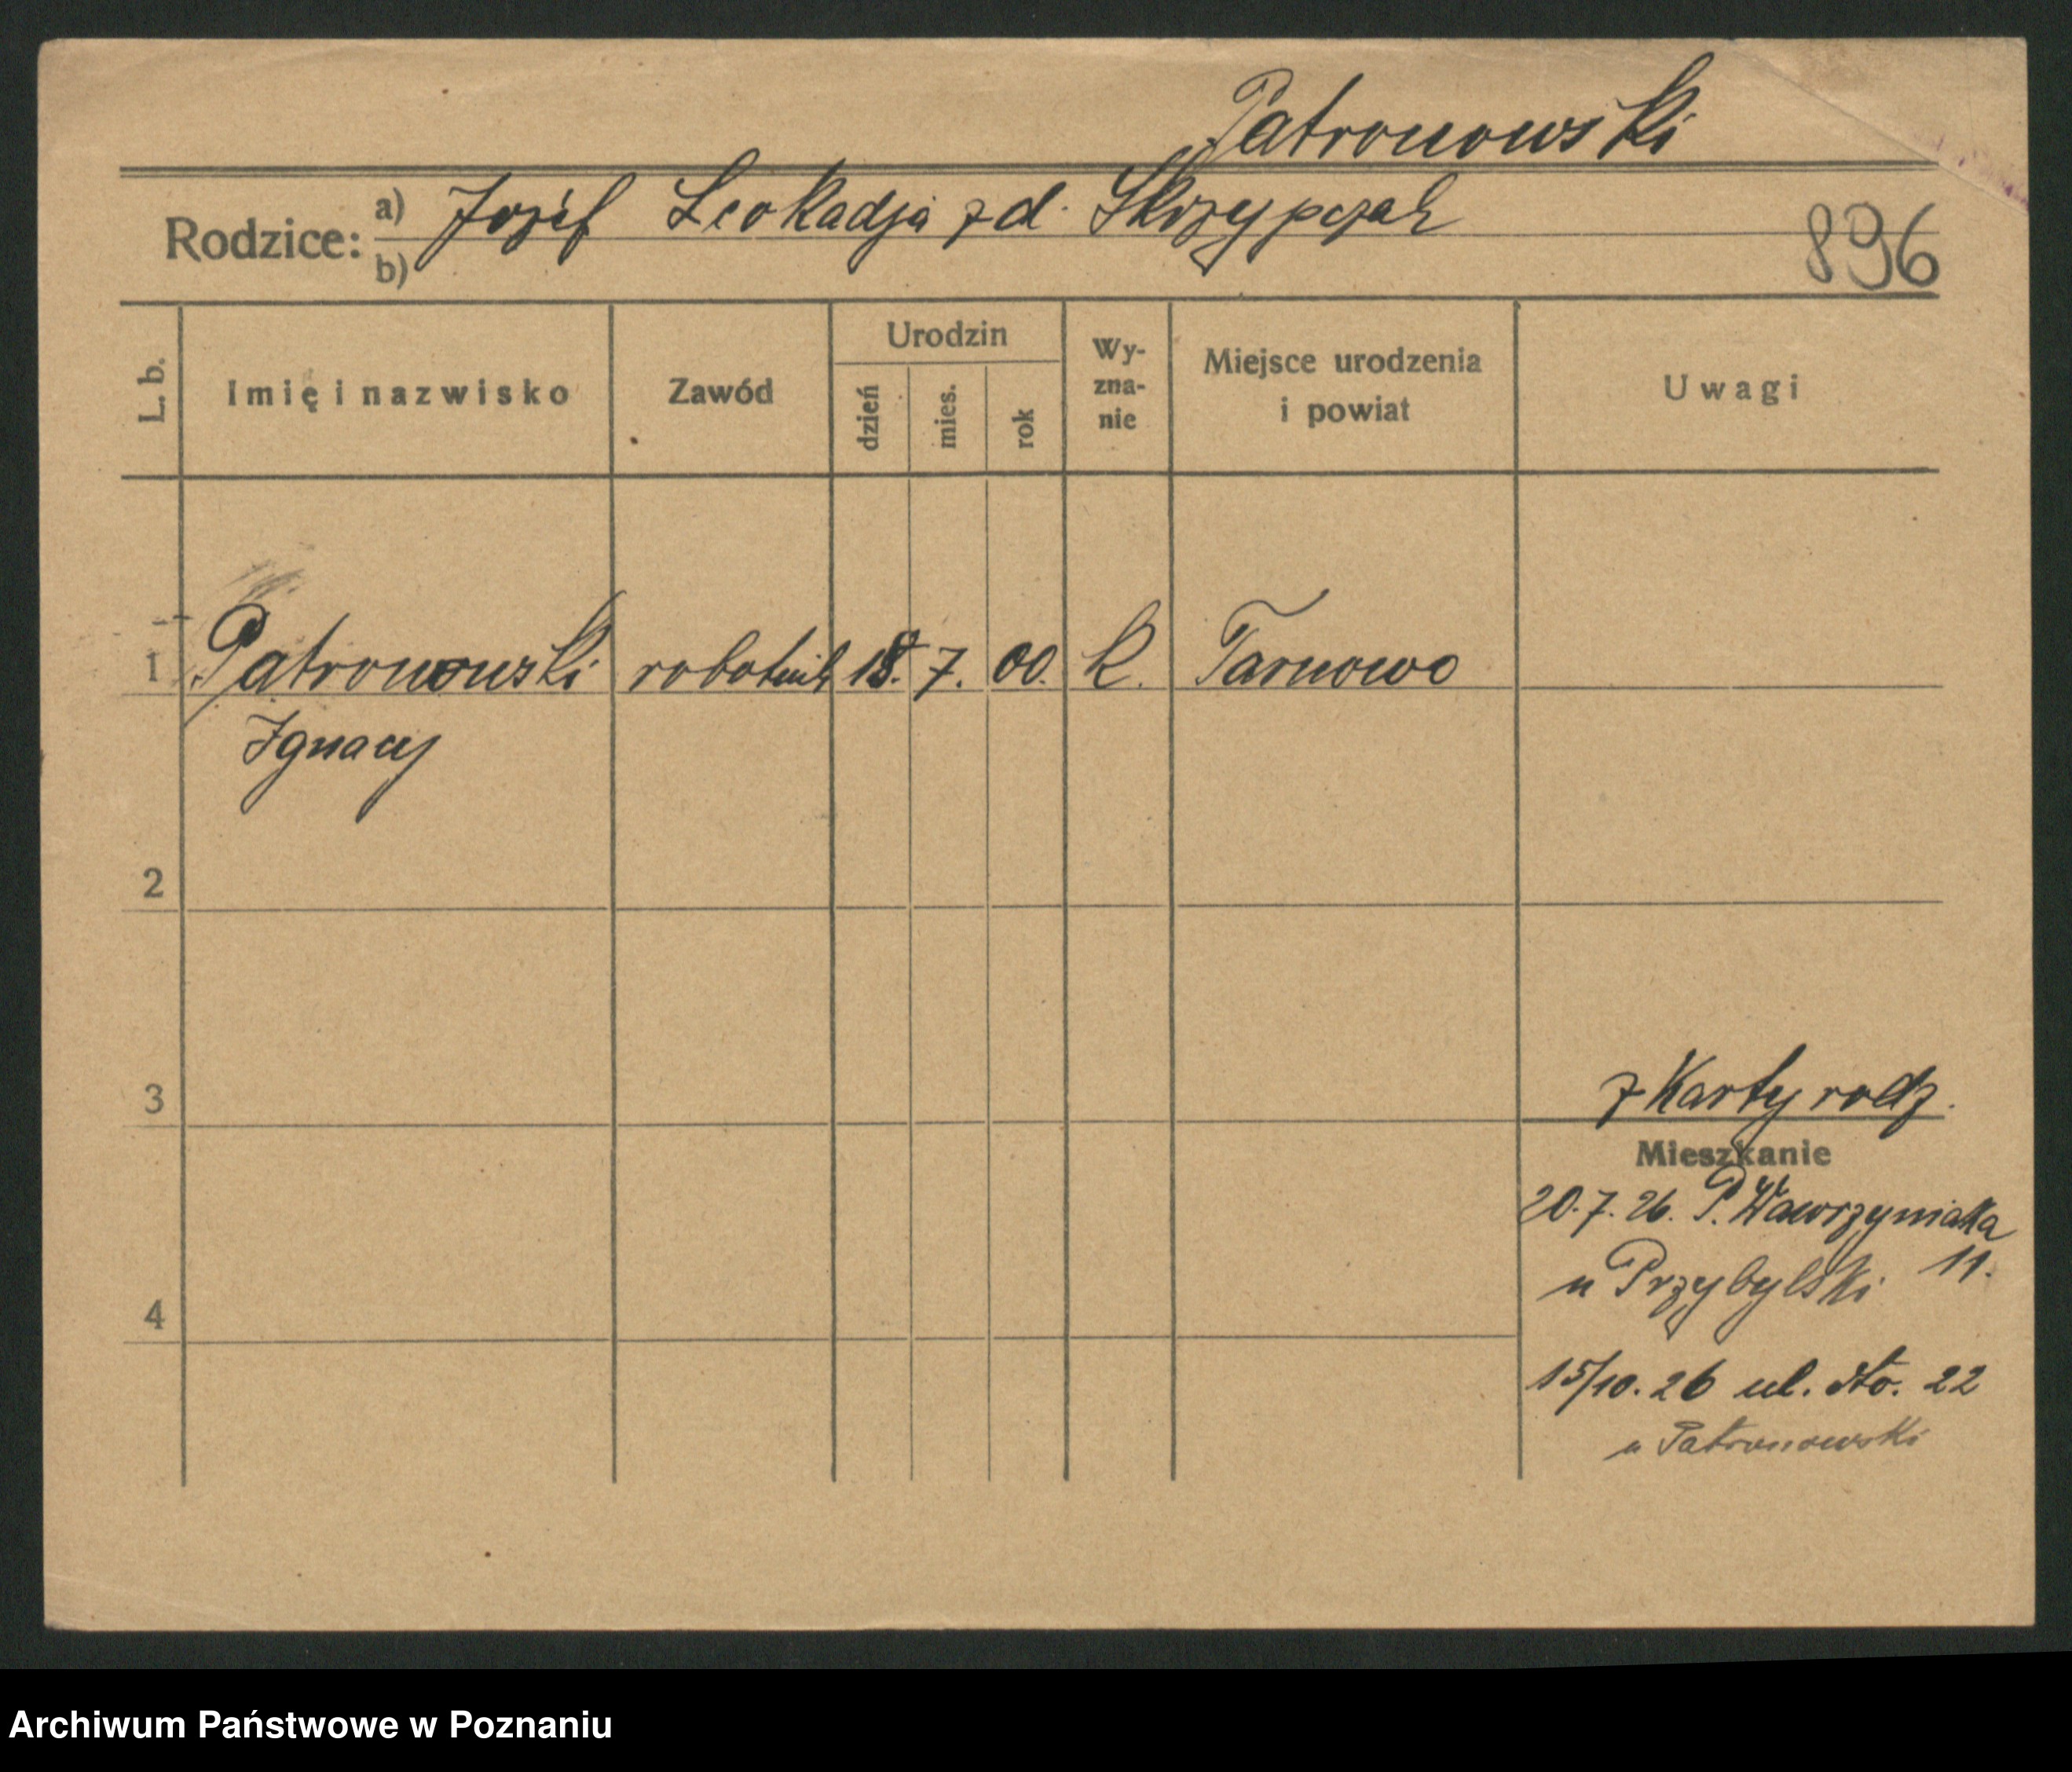 Patronowski
Rodzice: a) Józef Leokadja z d. Skrzypczak
b)
896
L. b. Imię i nazwisko Zawód Urodzin dzień mies. rok Wy-zna-nie Miejsce urodzenia i powiat Uwagi
1 Patronowski robotnik 18. 7. 00. k. Tarnowo
Ignacy
2
3
z Karty rodz.
Mieszkanie
20.7.26. P. Wawrzyniaka
u Przybylski 11.
4
15/10.26 ul. 22
u Patronowski
Archiwum Państwowe w Poznaniu